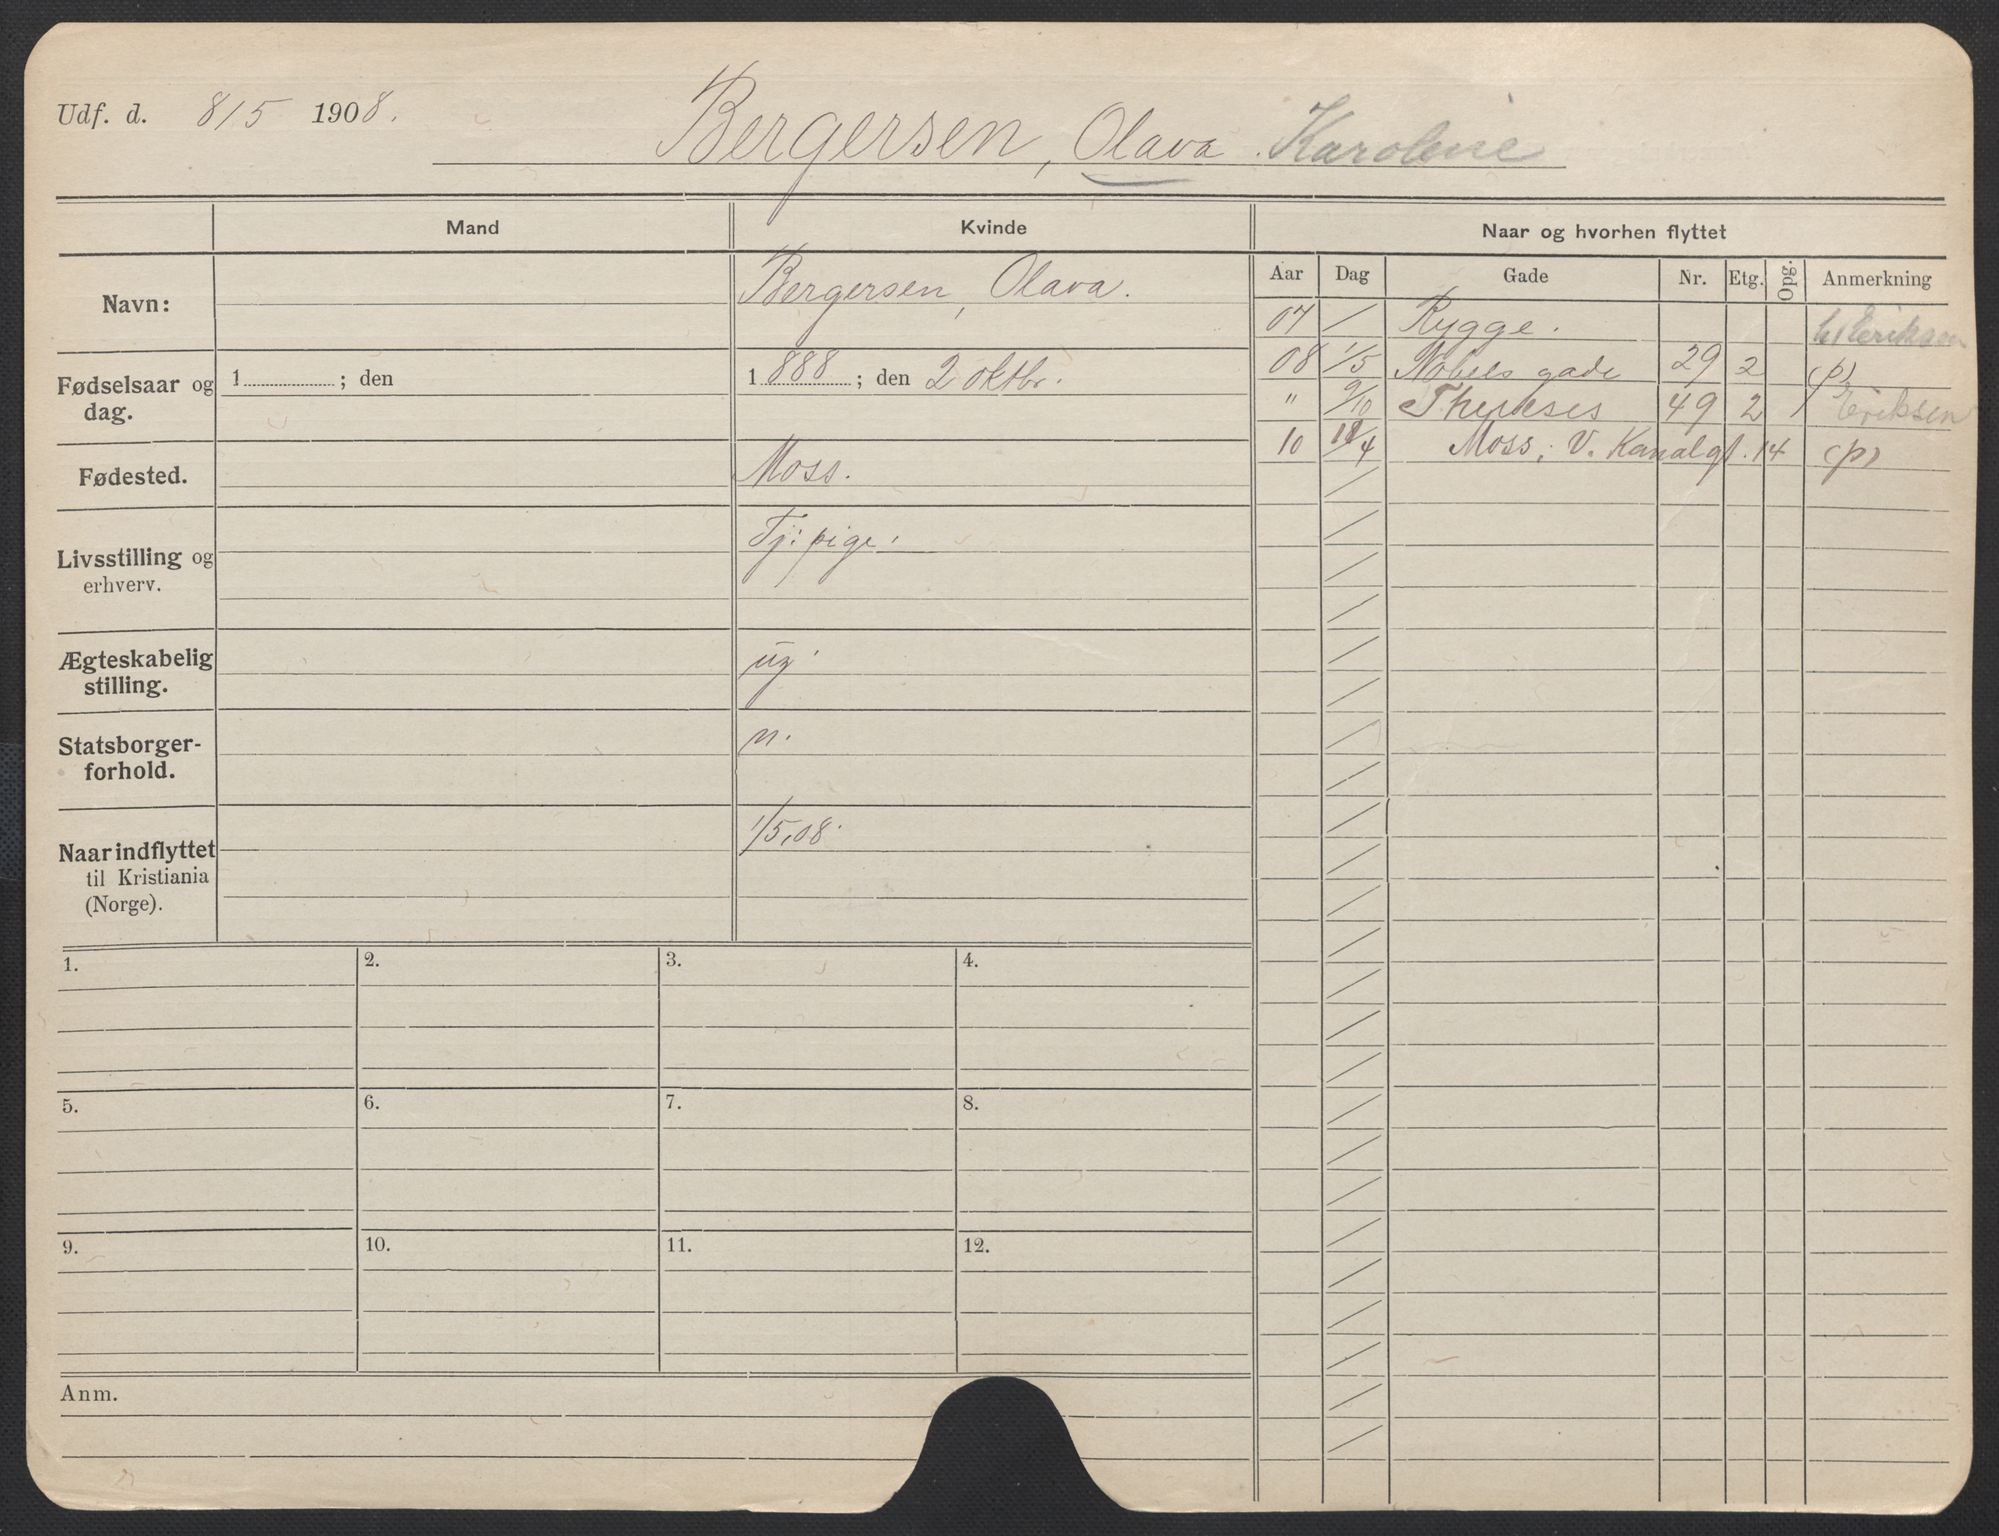 Udf. d. 8/5 1908.
Bergersen, Olava. Karoline
Mand
Kvinde
Naar og hvorhen flyttet
Aar Dag Gade Nr. Etg. Opg. Anmerkning
Navn: Bergersen, Olava.
Fødselsaar og dag. 1 ; den 1888 ; den 2 oktbr.
Fødested. Moss.
Livsstilling og erhverv. Tj: pige.
Ægteskabelig stilling. ug.
Statsborgerforhold. n.
Naar indflyttet til Kristiania (Norge). 1/5.08.
07 / Rygge. Eriksen
08 1/5 Nobels gade 29 2 (p)
" 9/10 Thereses 49 2 / Eriksen
10 /4 Moss, V. Kanalgt. 14 (p)
1. 2. 3. 4.
5. 6. 7. 8.
9. 10. 11. 12.
Anm.